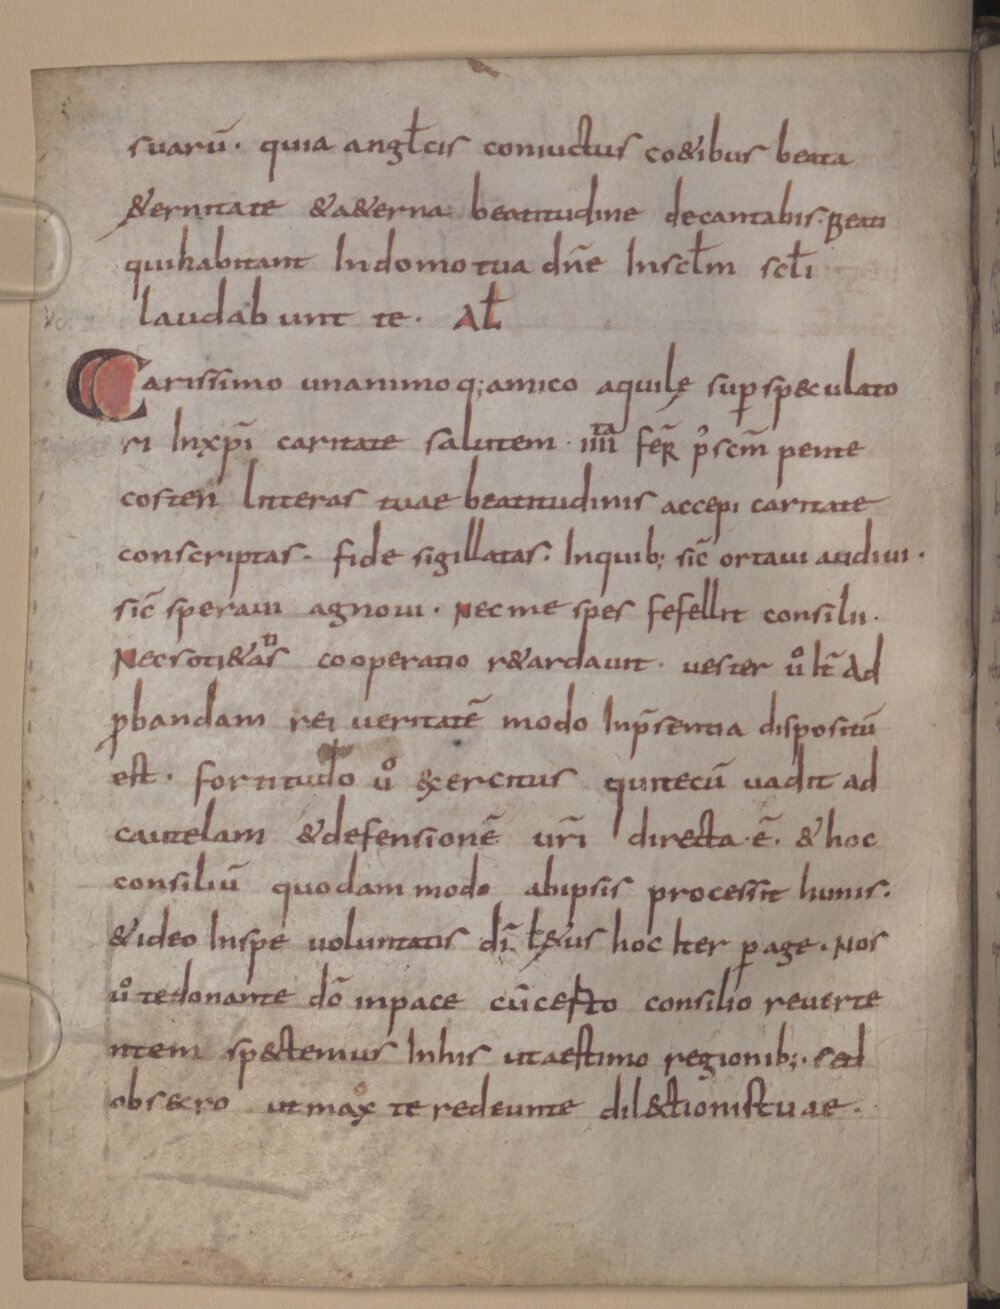 suarū. quia angłcis coniuctus co&ibus beata
&ernitate &a&erna beatitudine decantabis. Beati
quihabitant Indomotua dñe Insclm̄ scłi
laudab unt te. Ał
Carissimo unanimoq;amico aquilę sup̱ sp&culato
ri Inxpī caritate salutem. IIIIta fer̄ p̓scm̄ pente
costen Litteras tuae beatitudinis accepi caritate
conscriptas. fide sigillatas. Inquib; sic̄ ortaui audiui.
sic̄ speraui agnoui. Necme spes fefellit consilii.
Necsoti&atis cooperatio r&ardauit. uester ūo Ad
ꝓbandam rei ueritatē modo Inp̄sentia dispositū
est. fortitudo ūo &xercitus quitecū uadit ad
cautelam &defensionē ur̄i directa.ē. &hoc
consiliū quodammodo abipsis processit hunis.
&ideo Inspe uoluntatis dī ł&us hoc Iter ꝑage. Nos
ūo tedonante dō inpace cūcesto consilio reuerte
ntem sp&ctemus Inhis utaestimo regionib;. sed
obs&cro utmox teredeunte dil&ctionistuae.